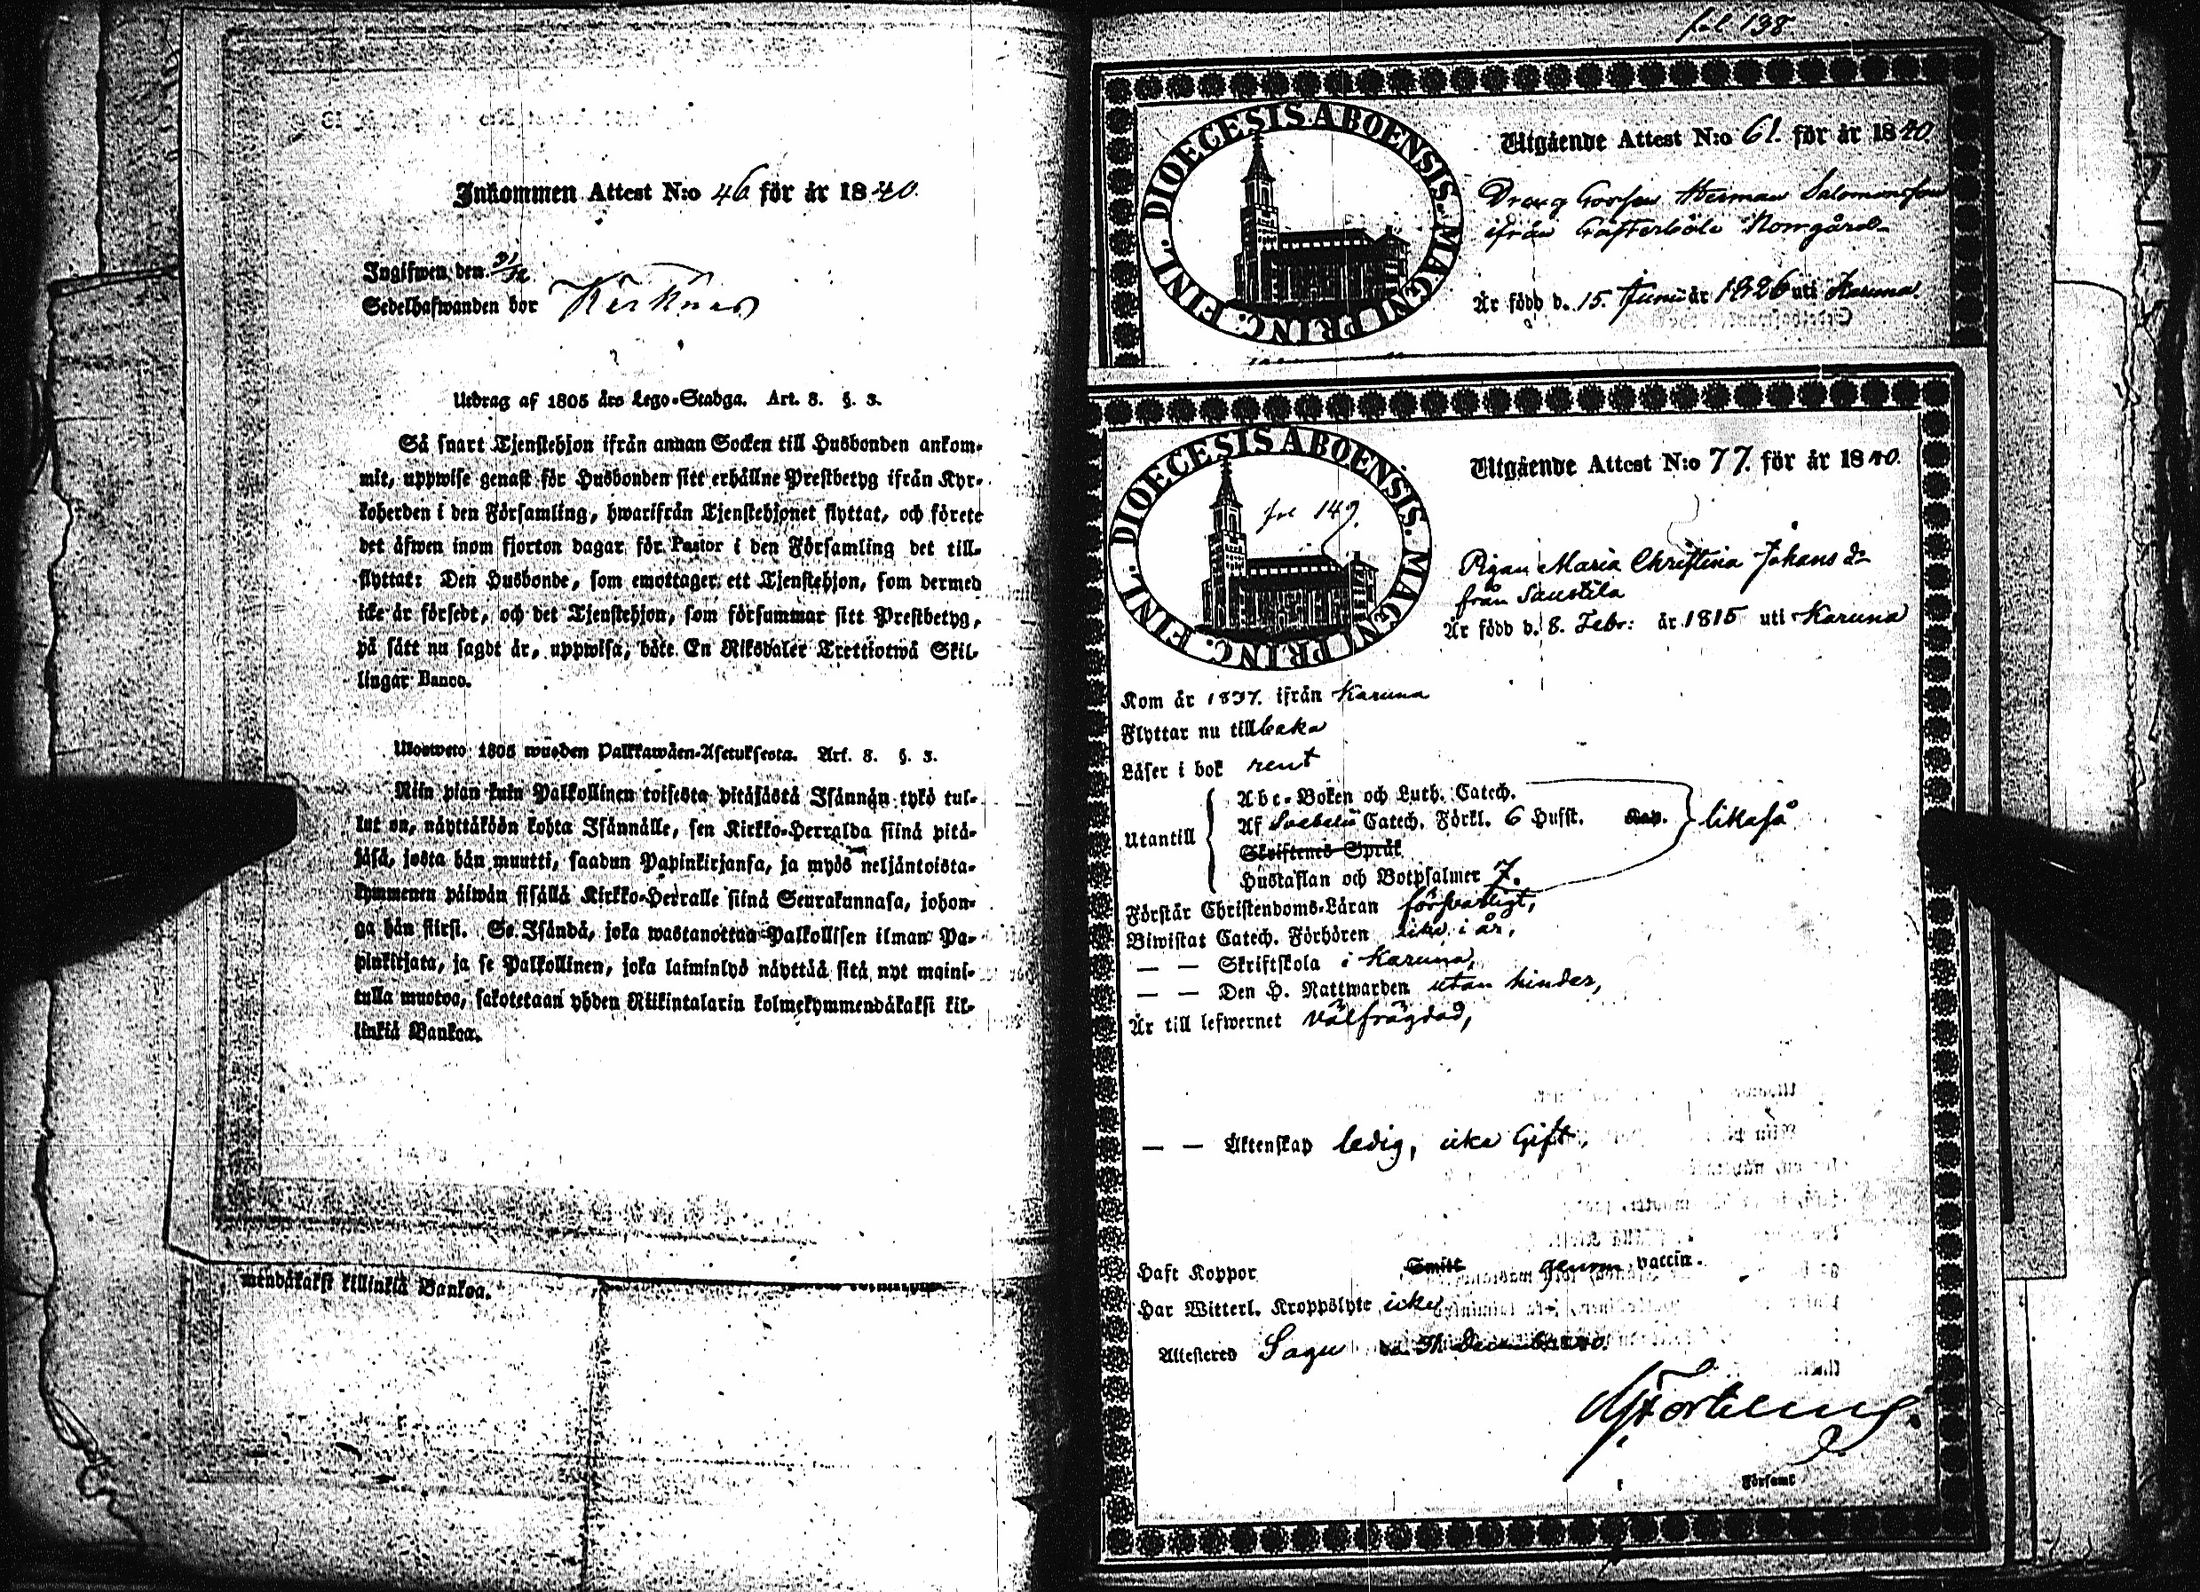 Inkommen Attest N:o 46 för år 1840.
Ingifwen den 31/12
Sedelhafwanden bor Kirknäs
Utdrag af 1805 års Lego-Stadga. Art. 8. §. 3.
Så snart Tjenstehjon ifrån annan Socken till Husbonden ankom-
mit, uppwise genast för Husbonden sitt erhållne Prestbetyg ifrån Kyr-
koherden i den Församling, hwarifrån Tjenstehjonet flyttat, och förete
det äfwen inom fjorton dagar för Pastor i den Församling det till-
flyttat: Den Husbonde, som emottager ett Tjenstehjon, som dermed
icke är försedt, och det Tjenstehjon, som försummar sitt Prestbetyg,
på sätt nu sagdt är, uppwisa, böte En Riksdaler Trettiotwå Skil-
lingar Banco.
Ulosweto 1805 wuoden Palkkawäen-Asetuksesta. Art. 8. §. 3.
Niin pian kuin Palkollinen toisesta pitäjästä Isännän tykö tul-
lut on, näyttäköön kohta Isännälle, sen Kirkko-Herralda siinä pitä-
jäsä, josta hän muutti, saadun Papinkirjansa, ja myös neljäntoista-
kymmenen päiwän sisällä Kirkko-Herralle siinä Seurakunnasa, johon-
ga hän siirsi. Se Isändä, joka wastanottaa Palkollisen ilman Pa-
pinkirjata, ja se Palkollinen, joka laiminlyö näyttää sitä, nyt maini-
tulla muotoa, sakotetaan yhden Riikintalarin kolmekymmendäkaksi kil-
linkiä Bankoa.
mendäkaksi killinkiä Bankoa.
fol 138
DIOECESIS ABOENSIS. MAGNI PRINC. FINL.
Utgående Attest N:o 61. för år 1840.
Dreng Herman Salomonsson
ifrån Norrgård
Är född d. 15. Junii år 1826 uti Karuna.
DIOECESIS ABOENSIS. MAGNI PRINC. FINL.
fol 149.
Utgående Attest N:o 77. för år 1840.
Pigan Maria Christina Johans dr
från Saustila
Är född d. 8. Febr: år 1815 uti Karuna
Kom år 1837. ifrån Karuna
Flyttar nu tillbaka
Läser i bok rent
Utantill
Abc-Boken och Luth. Catech.
Af Svebelii Catech. Förkl. 6 Hufst. Kap.
likaså
Skriftenes Språk
Hustaflan och Botpsalmer 7.
Förstår Christendoms-Läran försvarligt,
Biwistat Catech. Förhören icke i år,
— — Skriftskola i Karuna,
— — Den H. Nattwarden utan hinder,
Är till lefwernet välfrägdad,
— — Äktenskap ledig, icke Gift,
Haft Koppor Smitt genom vaccin.
Har Witterl. Kroppslyte icke
Attesteres Sagu d. 31 December 1840.
Församl